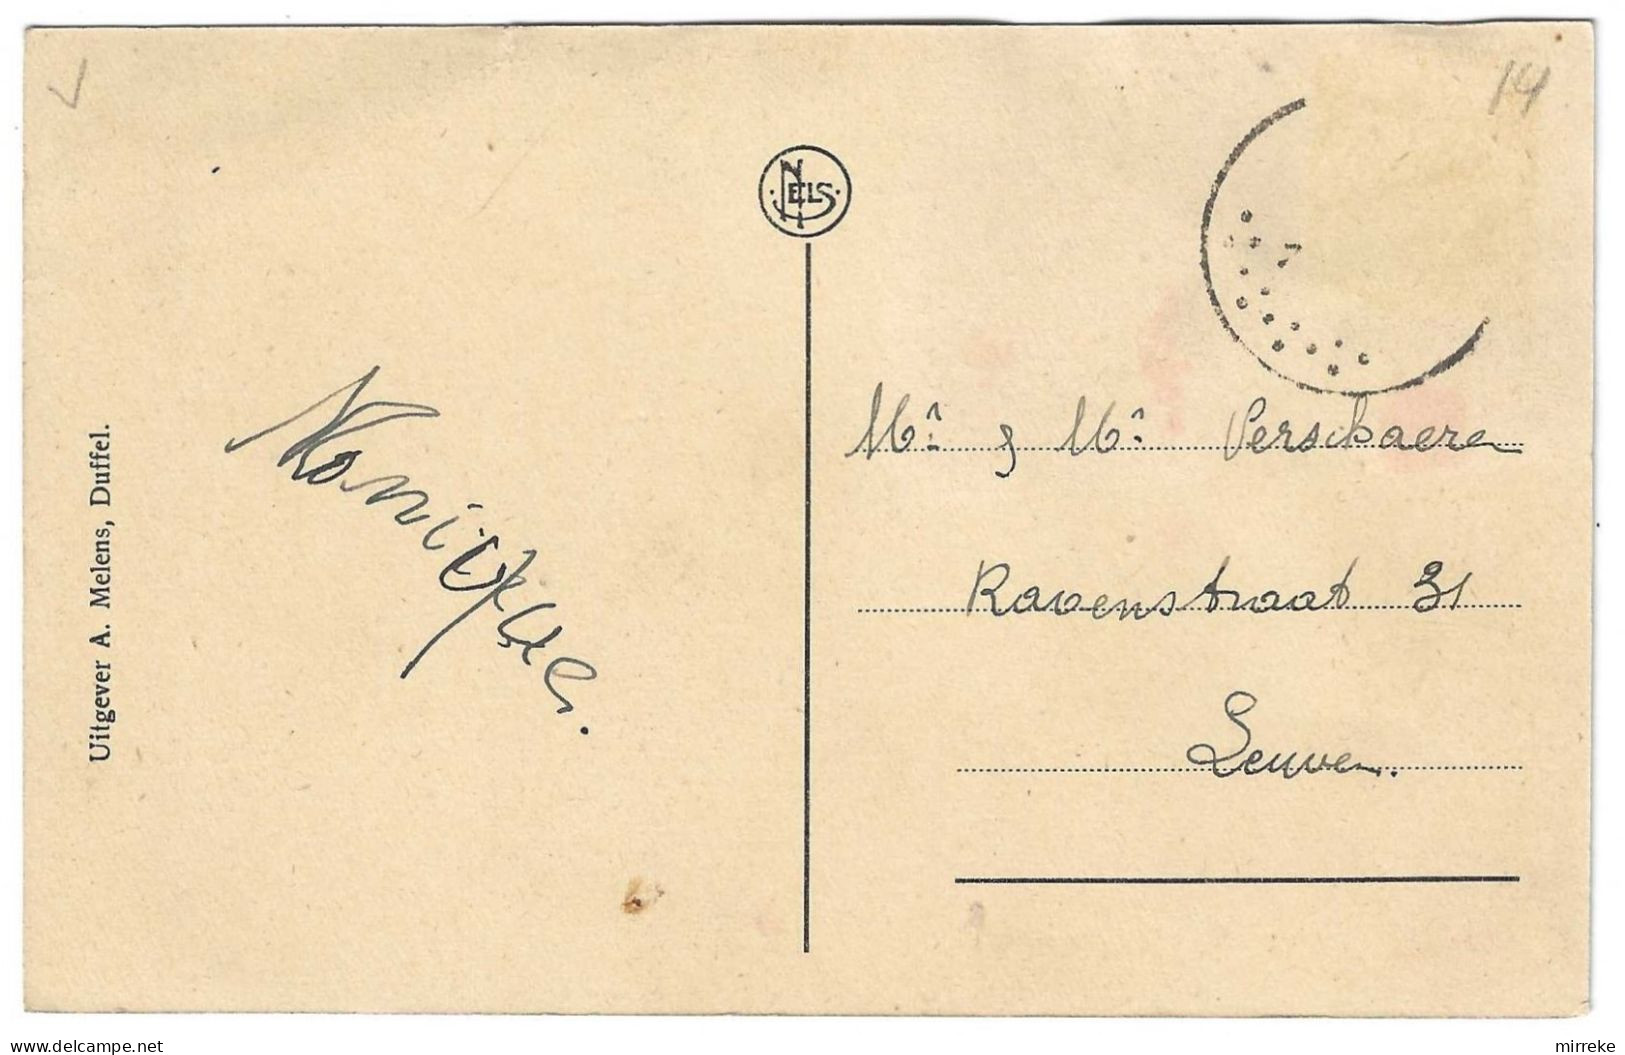 14
NELS
Uitgever A. Melens, Duffel.
Monique.
Mr. & Mr. Verschaere
Ravenstraat 31
Leuven.
www.delcampe.net
mirreke